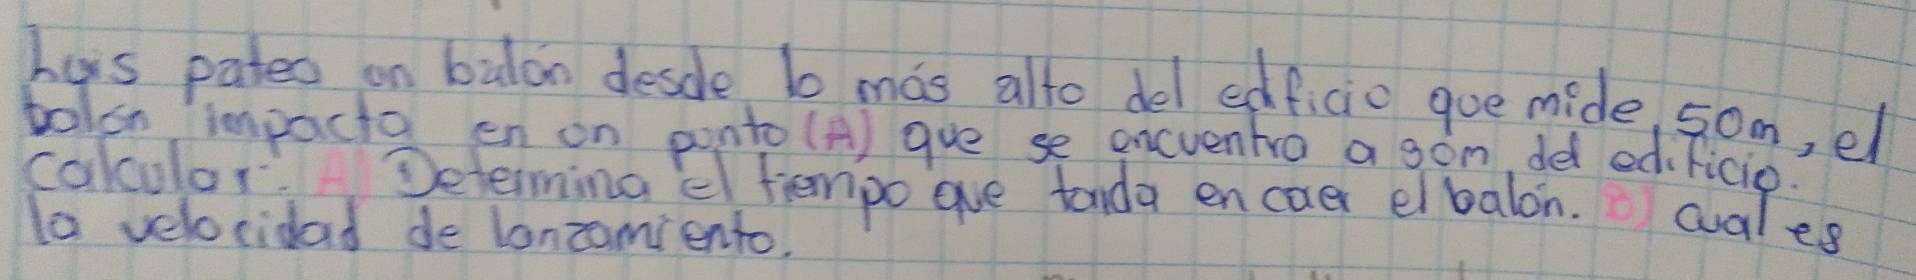 Luis pateo un balón desde lo más alto del edficio que mide 50m, el
balón impacta en un punto (A) que se encuentra a 90m del edificio.
Calcular: A) Determina el tiempo que tarda en caer el balón. B) cual es
la velocidad de lanzamiento.